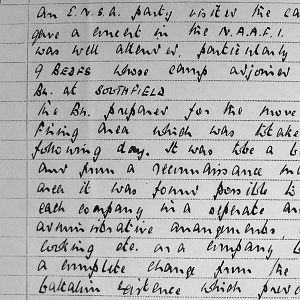 An E.N.S.A. party visited the ca
gave a concert in the N.A.A.F.I.
was well attended, particularly
9 BEDFS whose camp adjoined
Bn. at SOUTHFIELD
The Bn. prepared for the move
firing area which was to take
following day. It was to be a b
and from a reconnaissance
area it was found possible t
each company in a seperate ar
administrative arrangements,
cooking etc. on a company b
a complete change from the
battalion existence which prev